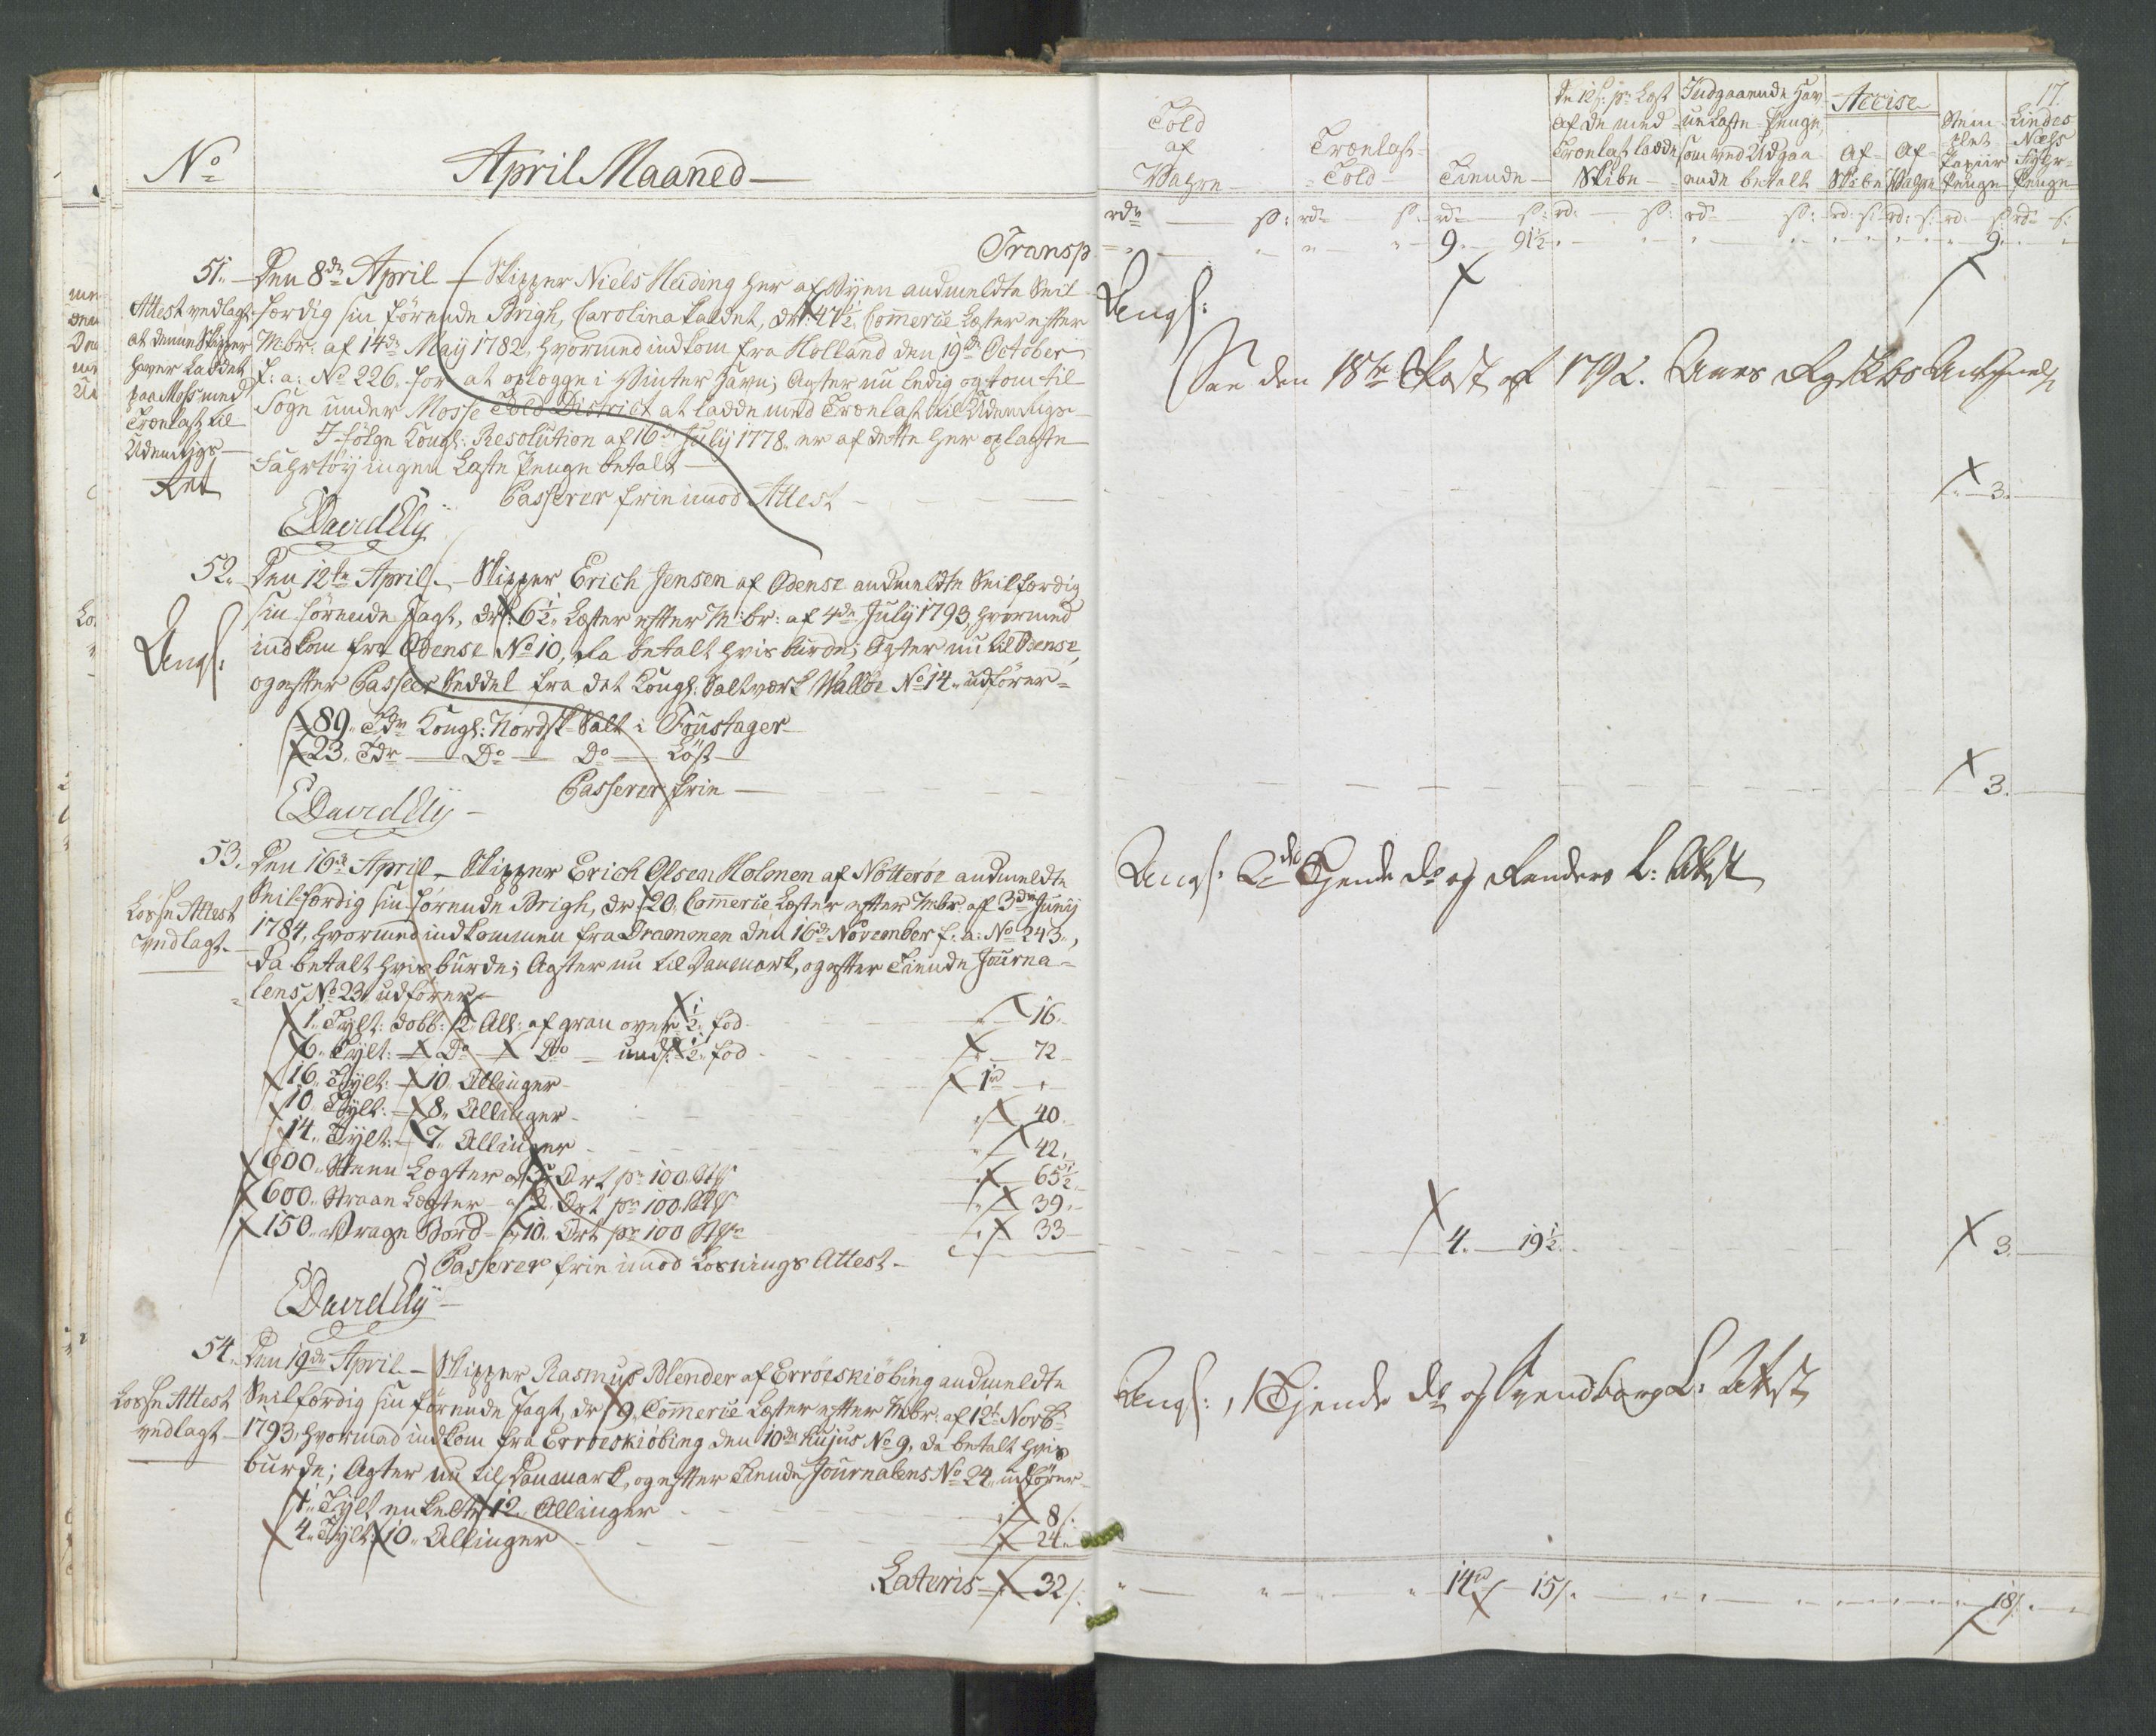 No
April Maaned
Transp
51. Den 8de April Skipper Niels Heiding her af Byen andmeldte Seil
færdig sin førende Brigh, Carolina kaldet, dr: 47½ Commerce Læster efter
M:br: af 14de May 1782, hvormed indkom fra Holland den 19de October
f: a: No 226, for at oplegge i Winter Havn; Agter nu ledig og tom til
Sogn under Mosse Told District at ladde med Trælast til Udenrigs
I følge Kongl: Resolution af 16de July 1778 er af dette her oplagte
Fahrtøy ingen Læste Penge betalt
Passerer frie imod Attest
EDavidElij
Attest vedlagt
at denne Skipper
haver Laddet
paa Moss med
Trælast til
Udenrigs
52. Den 12te April Skipper Erich Jensen af Odense andmeldte Seilfærdig
sin førende Jagt, dr: 6½ Læster efter M:br: af 4de July 1793, hvormed
indkom fra Odense No 10, da betalt hvis burde; Agter nu til Odense,
og efter Passeer Seddel fra det Kongl: Saltværk Walløe No 14 udfører
89 Tdr Kongl: Nordsk Salt i Fustager
23 Tdr Do Do Løst
Passerer frie
EDavidElij
53. Den 16de April Skipper Erich Olsen Holmen af Nøtterøe andmeldte
Seilfærdig sin førende Brigh, dr 20 Commerce Læster efter M:br: af 3de Junij
1784, hvormed indkommen fra Drammen den 16de November f: a: No 243,
da betalt hvis burde; Agter nu til Danmark, og efter Tiende Journa-
lens No 23 udfører
Losse Attest
vedlagt
1 Tylt: dobb: 12 All: af gran over ½ fod 16
6 Tylt: Do Do und: ½ fod 72
16 Tylt: 10 Allinger 1rd
10 Tylt: 8 Allinger 40
14 Tylt: 7 Allinger 42
600 Steen Lægter a 5 Ort pr 100 Stk 65½
600 Straae Lægter a 3 Ort pr 100 Stk 39
150 Vrage Bord a 10 Ort pr 100 Stk 33
Passerer frie imod Losnings Attest
EDavidElij
54. Den 19de April Skipper Rasmus Blender af Erröeskiöbing andmeldte
Seilfærdig sin førende Jagt, dr 9 Commerce Læster efter M:br: af 12te Novbr
1793, hvormed indkom fra Erröeskiöbing den 10de hujus No 9, da betalt hvis
burde; Agter nu til Danmark, og efter Tiende Journalens No 24 udfører
Losse Attest
vedlagt
1 Tylt enkelte 12 Allinger 8
4 Tylt 10 Allinger 24
Lateris 32
17.
Told
af
Wahre
Trælast
Told
Tiende
De 12 s: pr Læst
af de med
Trælast ladde
Skibe
Indgaaende Hav-
ne Læste Penge,
som ved Udgaa-
ende betalt
Accise
Af
Skibe
Af
Wahre
Stem-
plet
Papiir
Penge
Lindes
Næss
Fyhr-
Penge
rdr s: rdr s: rdr s: rd: s: rdr s: rd: s: rd: s: rd: s: rdr s:
9 91½ 9
See den 18de Post af 1792. Aars
3
3
Tiende do og Randers L: Attest
4 19½ 3
1 Tiende do og Svendborg L: Attest
14rd 15 18